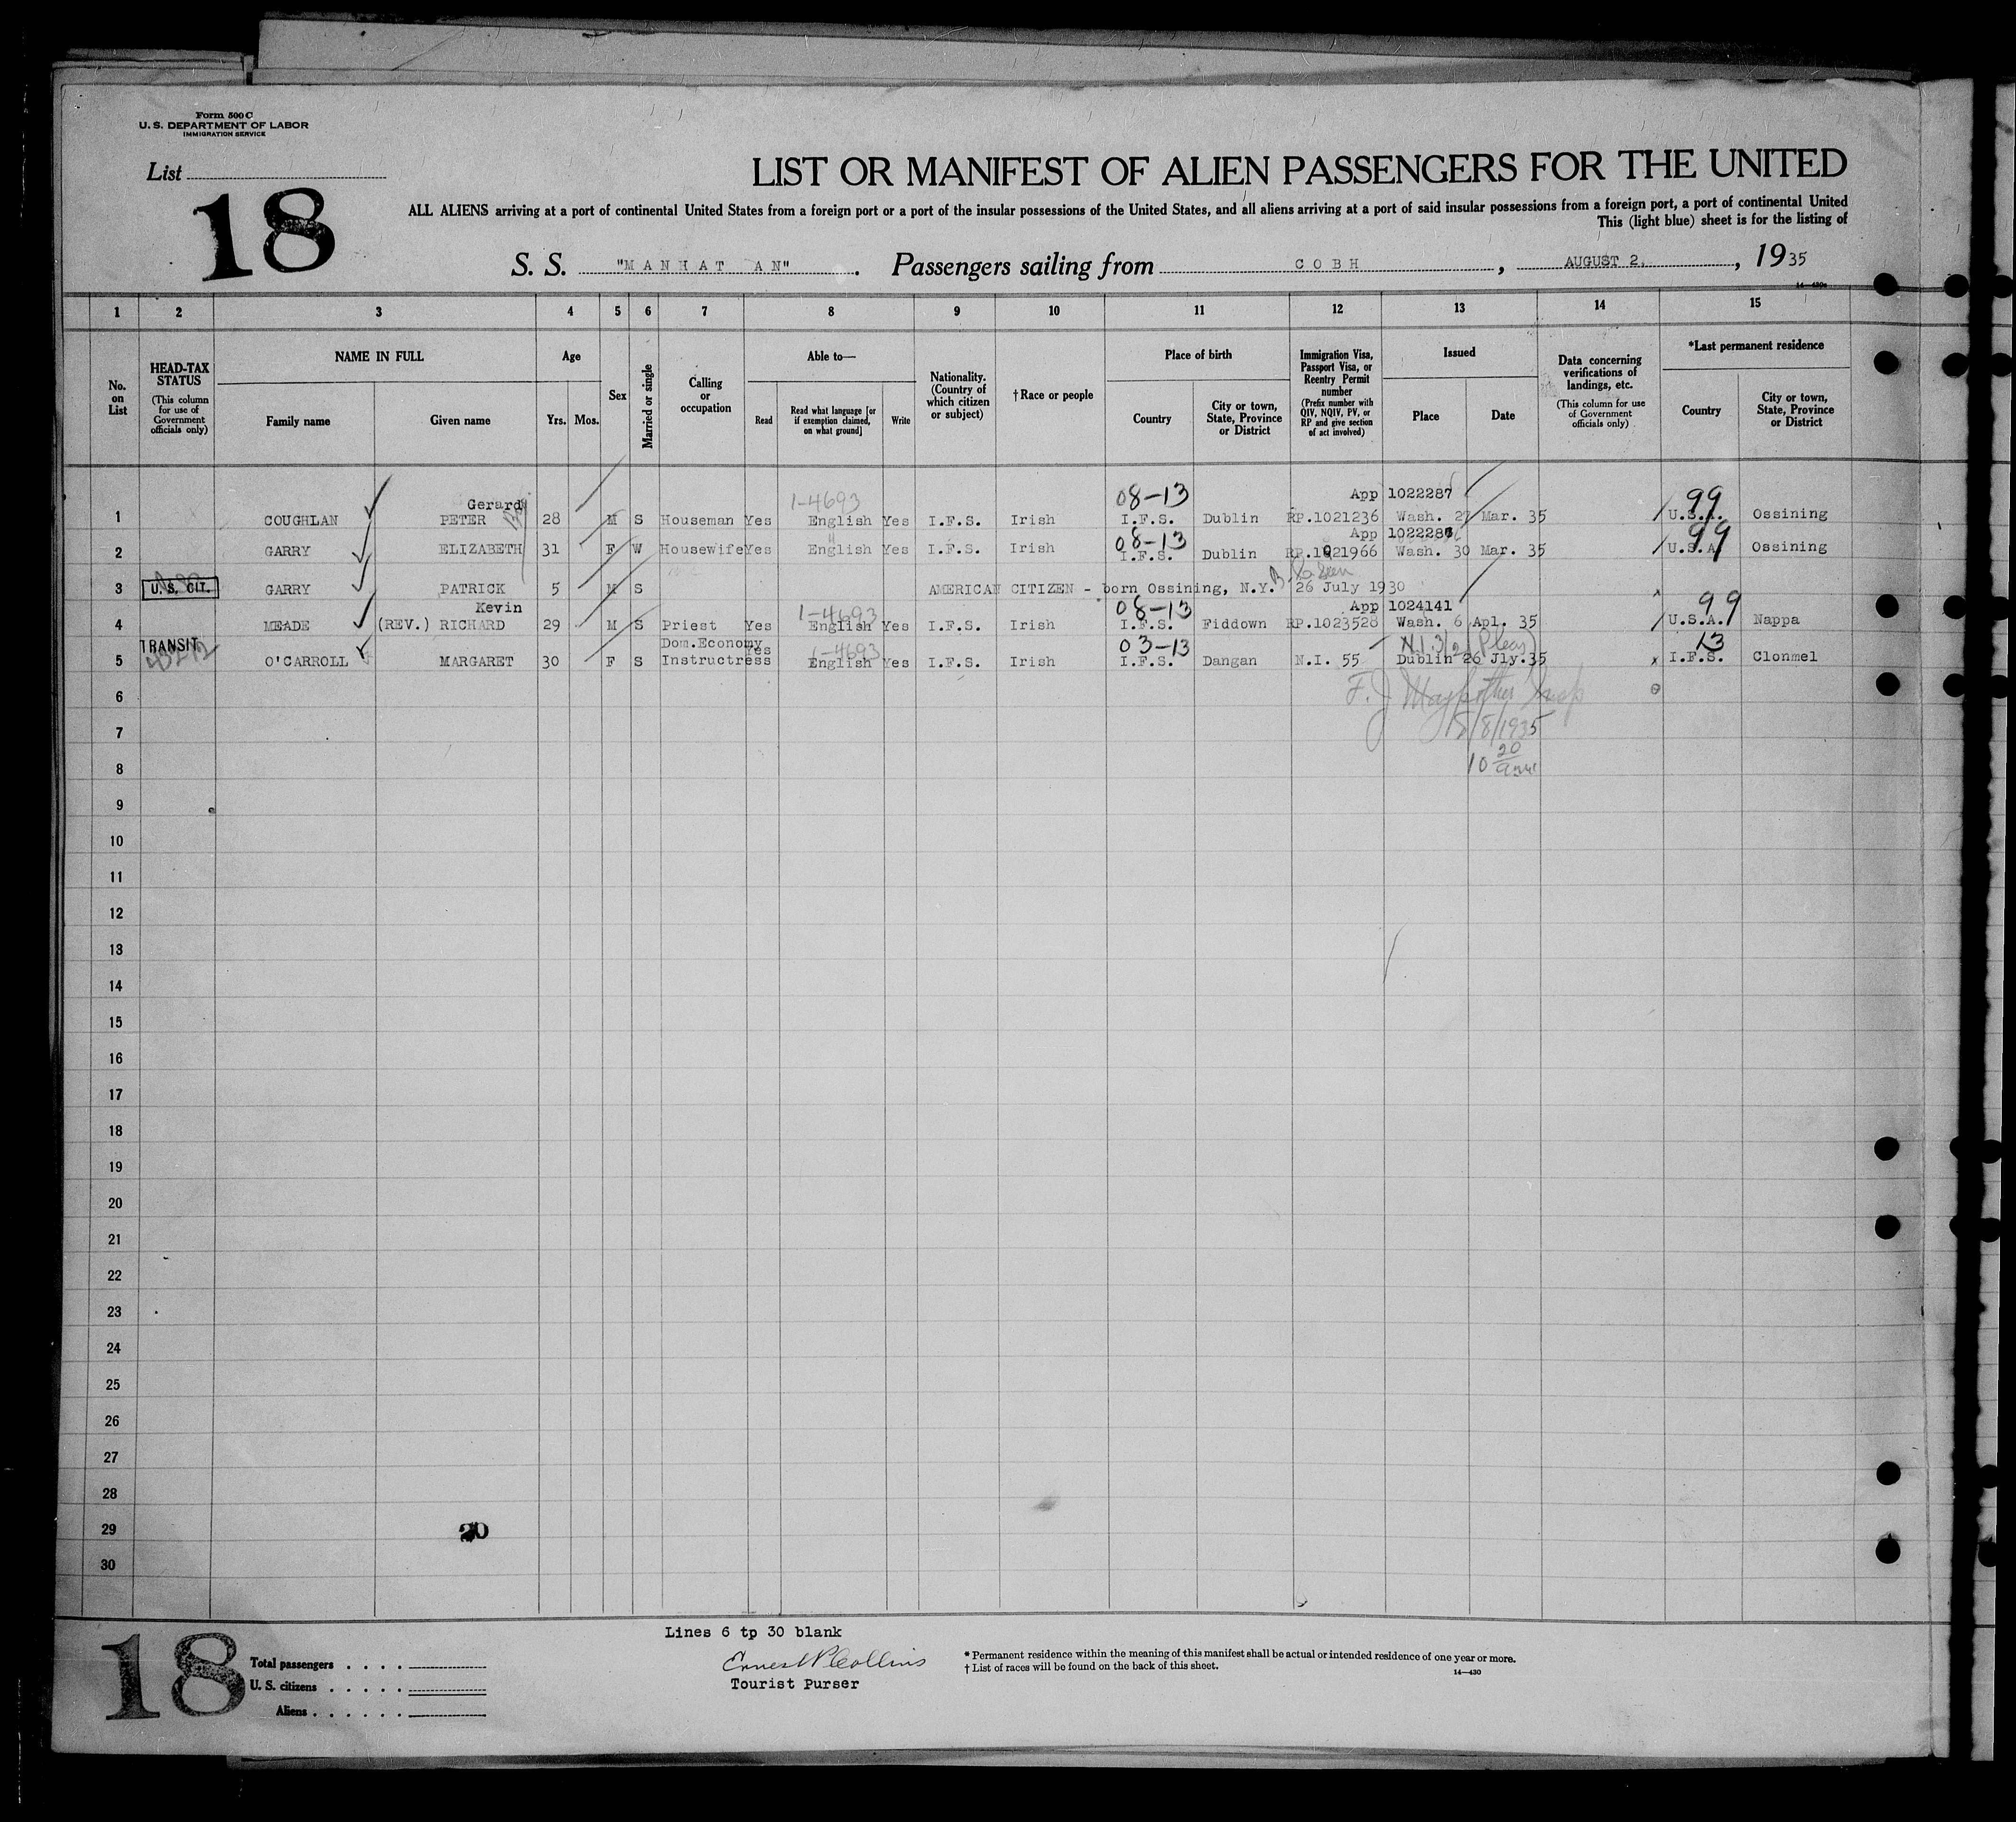 Form 500 C
U. S. DEPARTMENT OF LABOR
IMMIGRATION SERVICE
List
18
LIST OR MANIFEST OF ALIEN PASSENGERS FOR THE UNITED
ALL ALIENS arriving at a port of continental United States from a foreign port or a port of the insular possessions of the United States, and all aliens arriving at a port of said insular possessions from a foreign port, a port of continental United
This (light blue) sheet is for the listing of
S. S. "MANHAT AN". Passengers sailing from COBH, AUGUST 2, 1935
1 2 3 4 5 6 7 8 9 10 11 12 13 14 15
No. on List
HEAD-TAX STATUS (This column for use of Government officials only)
NAME IN FULL
Family name Given name
Age
Yrs. Mos.
Sex
Married or single
Calling or occupation
Able to—
Read Read what language [or if exemption claimed, on what ground] Write
Nationality. (Country of which citizen or subject)
†Race or people
Place of birth
Country City or town, State, Province or District
Immigration Visa, Passport Visa, or Reentry Permit number (Prefix number with QIV, NQIV, PV, or RP and give section of act involved)
Issued
Place Date
Data concerning verifications of landings, etc. (This column for use of Government officials only)
*Last permanent residence
Country City or town, State, Province or District
Gerard 1-4693 08-13 App 1022287 99
1 COUGHLAN PETER 28 M S Houseman Yes English Yes I.F.S. Irish I.F.S. Dublin RP.1021236 Wash. 27 Mar. 35 U.S.A. Ossining
08-13 App 1022286 99
2 GARRY ELIZABETH 31 F W Housewife Yes English Yes I.F.S. Irish I.F.S. Dublin RP.1021966 Wash. 30 Mar. 35 U.S.A. Ossining
3 U. S. CIT. GARRY PATRICK 5 M S AMERICAN CITIZEN - born Ossining, N.Y. 26 July 1930
Kevin 1-4693 08-13 App 1024141 99
4 MEADE (REV.) RICHARD 29 M S Priest Yes English Yes I.F.S. Irish I.F.S. Fiddown RP.1023528 Wash. 6 Apl. 35 U.S.A. Nappa
TRANSIT Dom.Economy 1-4693 03-13 13
5 O'CARROLL MARGARET 30 F S Instructress Yes English Yes I.F.S. Irish I.F.S. Dangan N.I. 55 Dublin 26 Jly.35 I.F.S. Clonmel
6
7 8/1935
8 10 20
9
10
11
12
13
14
15
16
17
18
19
20
21
22
23
24
25
26
27
28
29 20
30
Lines 6 tp 30 blank
18
Total passengers
U. S. citizens
Aliens
Ernest P Collins
Tourist Purser
* Permanent residence within the meaning of this manifest shall be actual or intended residence of one year or more.
† List of races will be found on the back of this sheet.
14—430